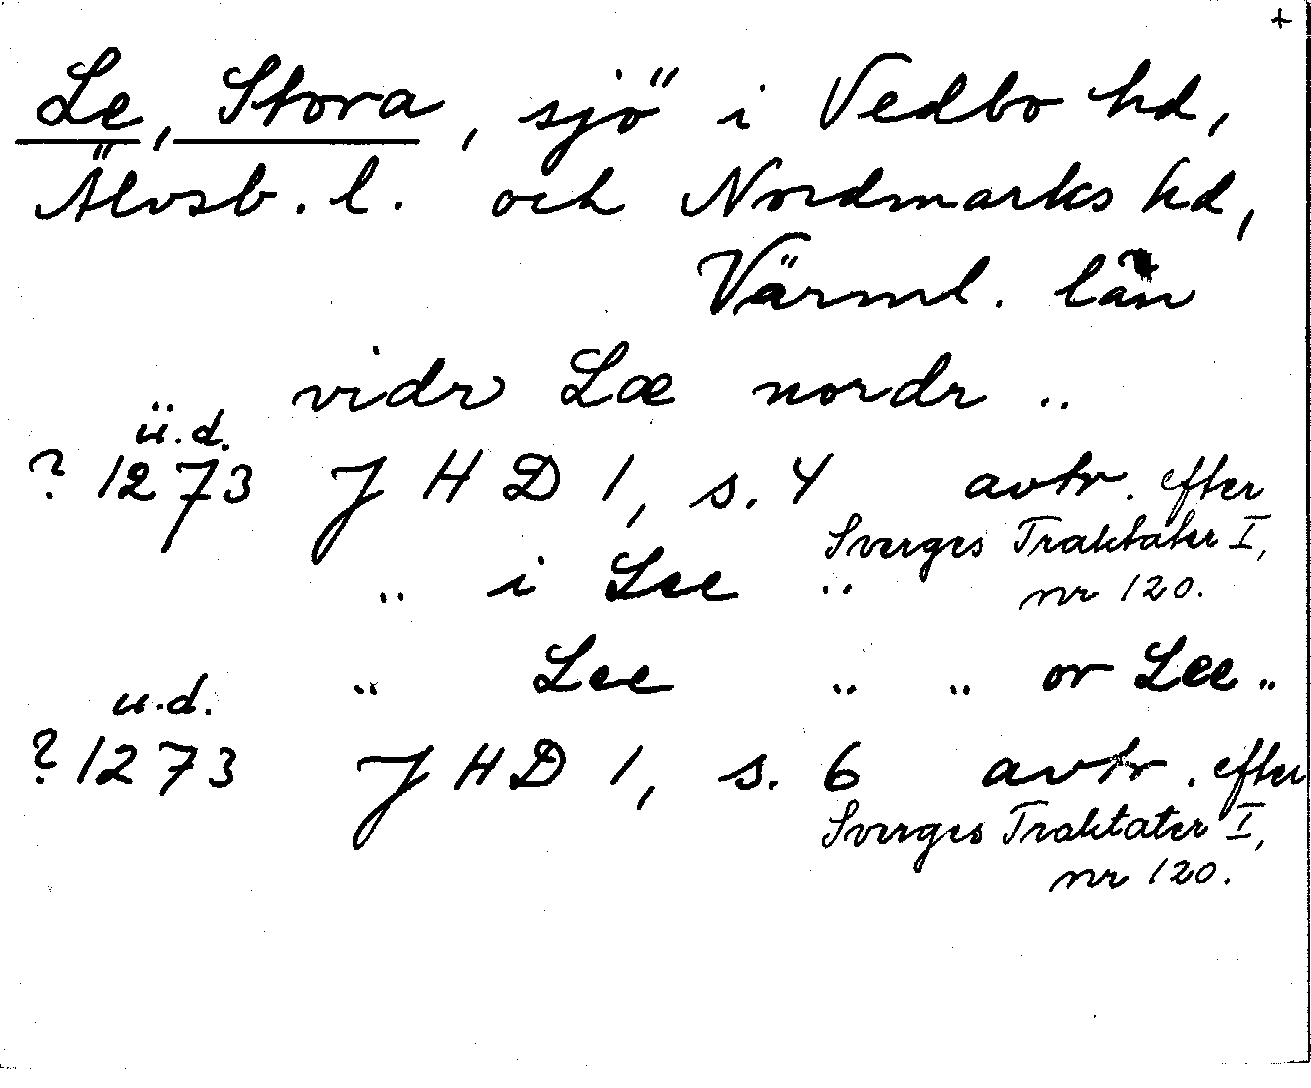 +
Le, Stora, sjö i Vedbo hd,
Älvsb. l. och Nordmarks hd,
Värml. län
vidr Læ nordr ..
u.d.
? 1273 JHD 1, s. 4 avtr. efter
Sverges Traktater I,
nr 120.
.. i Lee ..
.. Lee .. .. or Lee ..
u.d.
? 1273 JHD 1, s. 6 avtr. efter
Sverges Traktater I,
nr 120.